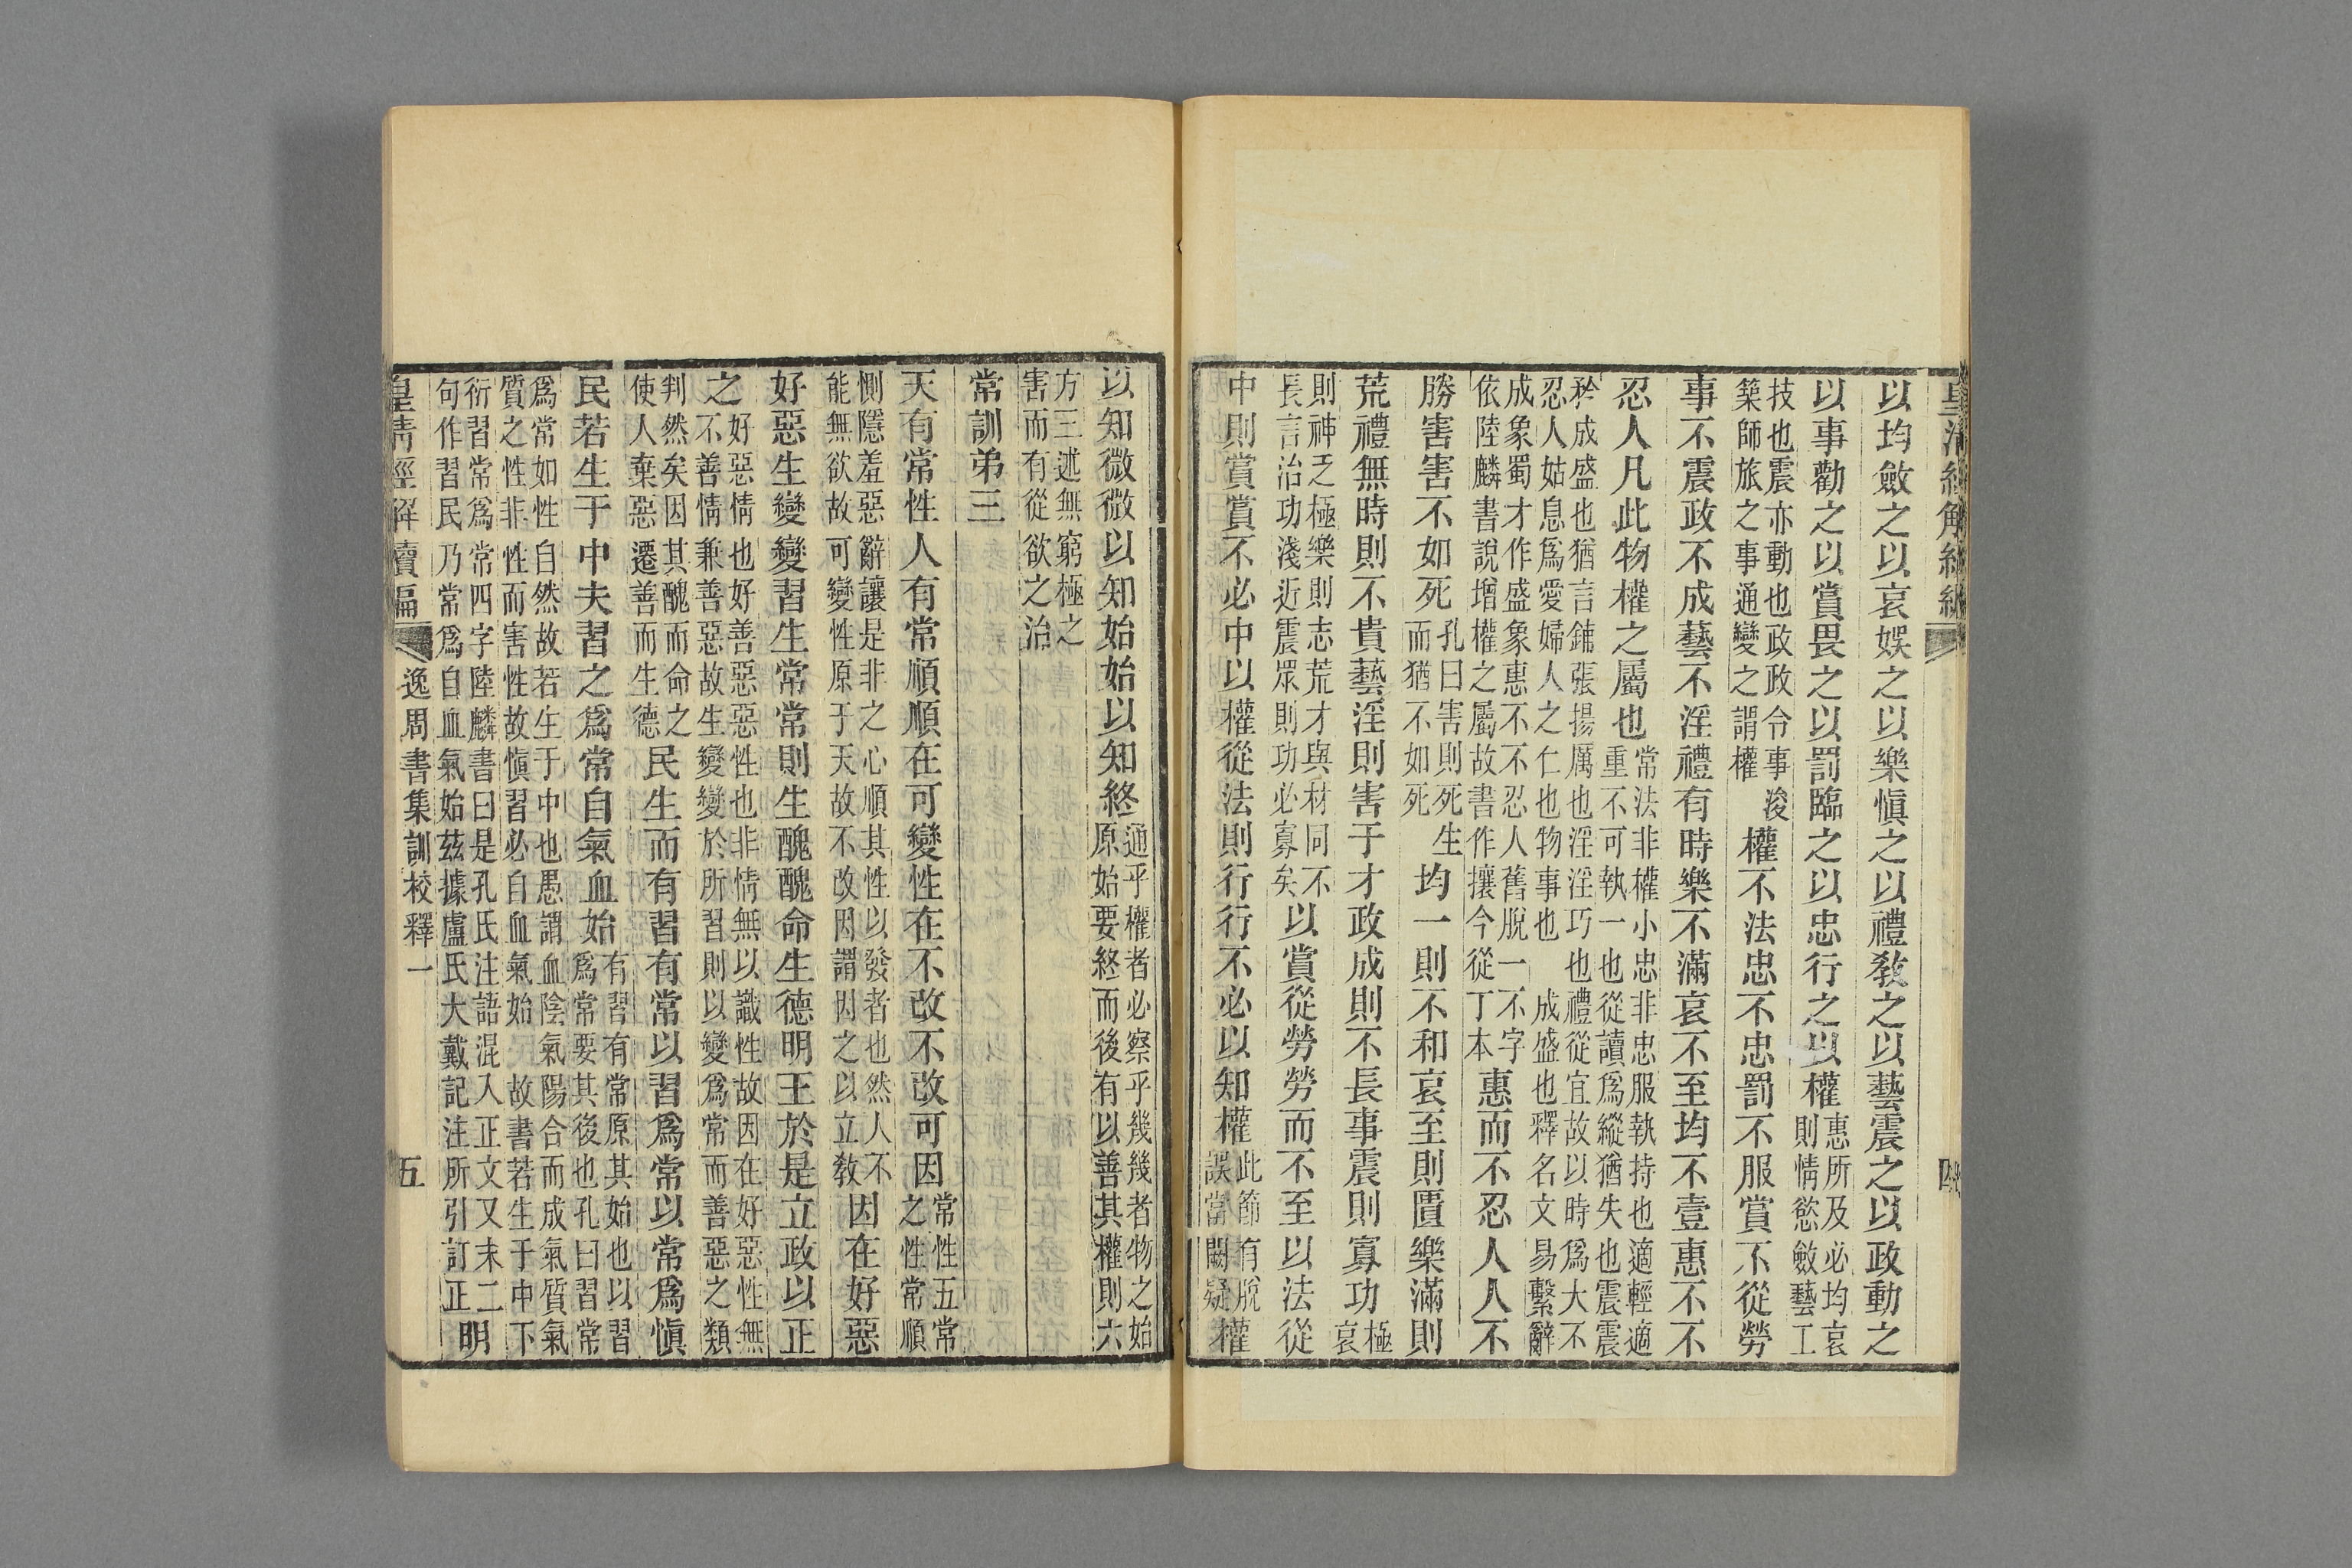 以均斂之以哀娛之以樂愼之以禮敎之以藝震之以政動之
以事勸之以賞畏之以罰臨之以忠行之以權惠所及必均哀則情慾斂藝工
技也震亦動也政政令事浚築師旅之事通變之謂權權不法忠不忠罰不服賞不從勞
事不震政不成藝不淫禮有時樂不滿哀不至均不壹惠不不
忍人凡此物權之屬也常法非權小忠非忠服執持也適輕適重不可執一也從讀爲縱猶失也震震
矜成盛也猶言鋪張揚厲也淫淫巧也禮從宜故以時爲大不忍人姑息爲愛婦人之仁也物事也成盛也釋名文易繫辭
成象蜀才作盛象惠不不忍人舊脫一不字依陸麟書說增權之屬故書作攘今從丁本惠而不忍人人不
勝害害不如死孔曰害則死生而猶不如死均一則不和哀至則匱樂滿則
荒禮無時則不貴藝淫則害于才政成則不長事震則寡功極哀
則神乏極樂則志荒才與材同不長言治功淺近震眾則功必寡矣以賞從勞勞而不至以法從
中則賞賞不必中以權從法則行行不必以知權此節有脫誤當闕疑權
以知微微以知始始以知終通乎權者必察乎幾幾者物之始原始要終而後有以善其權則六
方三述無窮極之害而有從欲之治
常訓弟三
天有常性人有常順順在可變性在不改不改可因常性五常之性常順
惻隱羞惡辭讓是非之心順其性以發者也然人不能無欲故可變性原于天故不改因謂因之以立敎因在好惡
好惡生變變習生常常則生醜醜命生德明王於是立政以正
之好惡情也好善惡惡性也非情無以識性故因在好惡性無不善情兼善惡故生變變於所習則以變爲常而善惡之類
判然矣因其醜而命之使人棄惡遷善而生德民生而有習有常以習爲常以常爲愼
民若生于中夫習之爲常自氣血始有習有常原其始也以習爲常要其後也孔曰習常
爲常如性自然故若生于中也愚謂血陰氣陽合而成氣質氣質之性非性而害性故愼習必自血氣始故書若生于中下
衍習常爲常四字陸麟書曰是孔氏注語混入正文又末二句作習民乃常爲自血氣始茲據盧氏大戴記注所引訂正明
皇淸經解續編
逸周書集訓校釋一
五